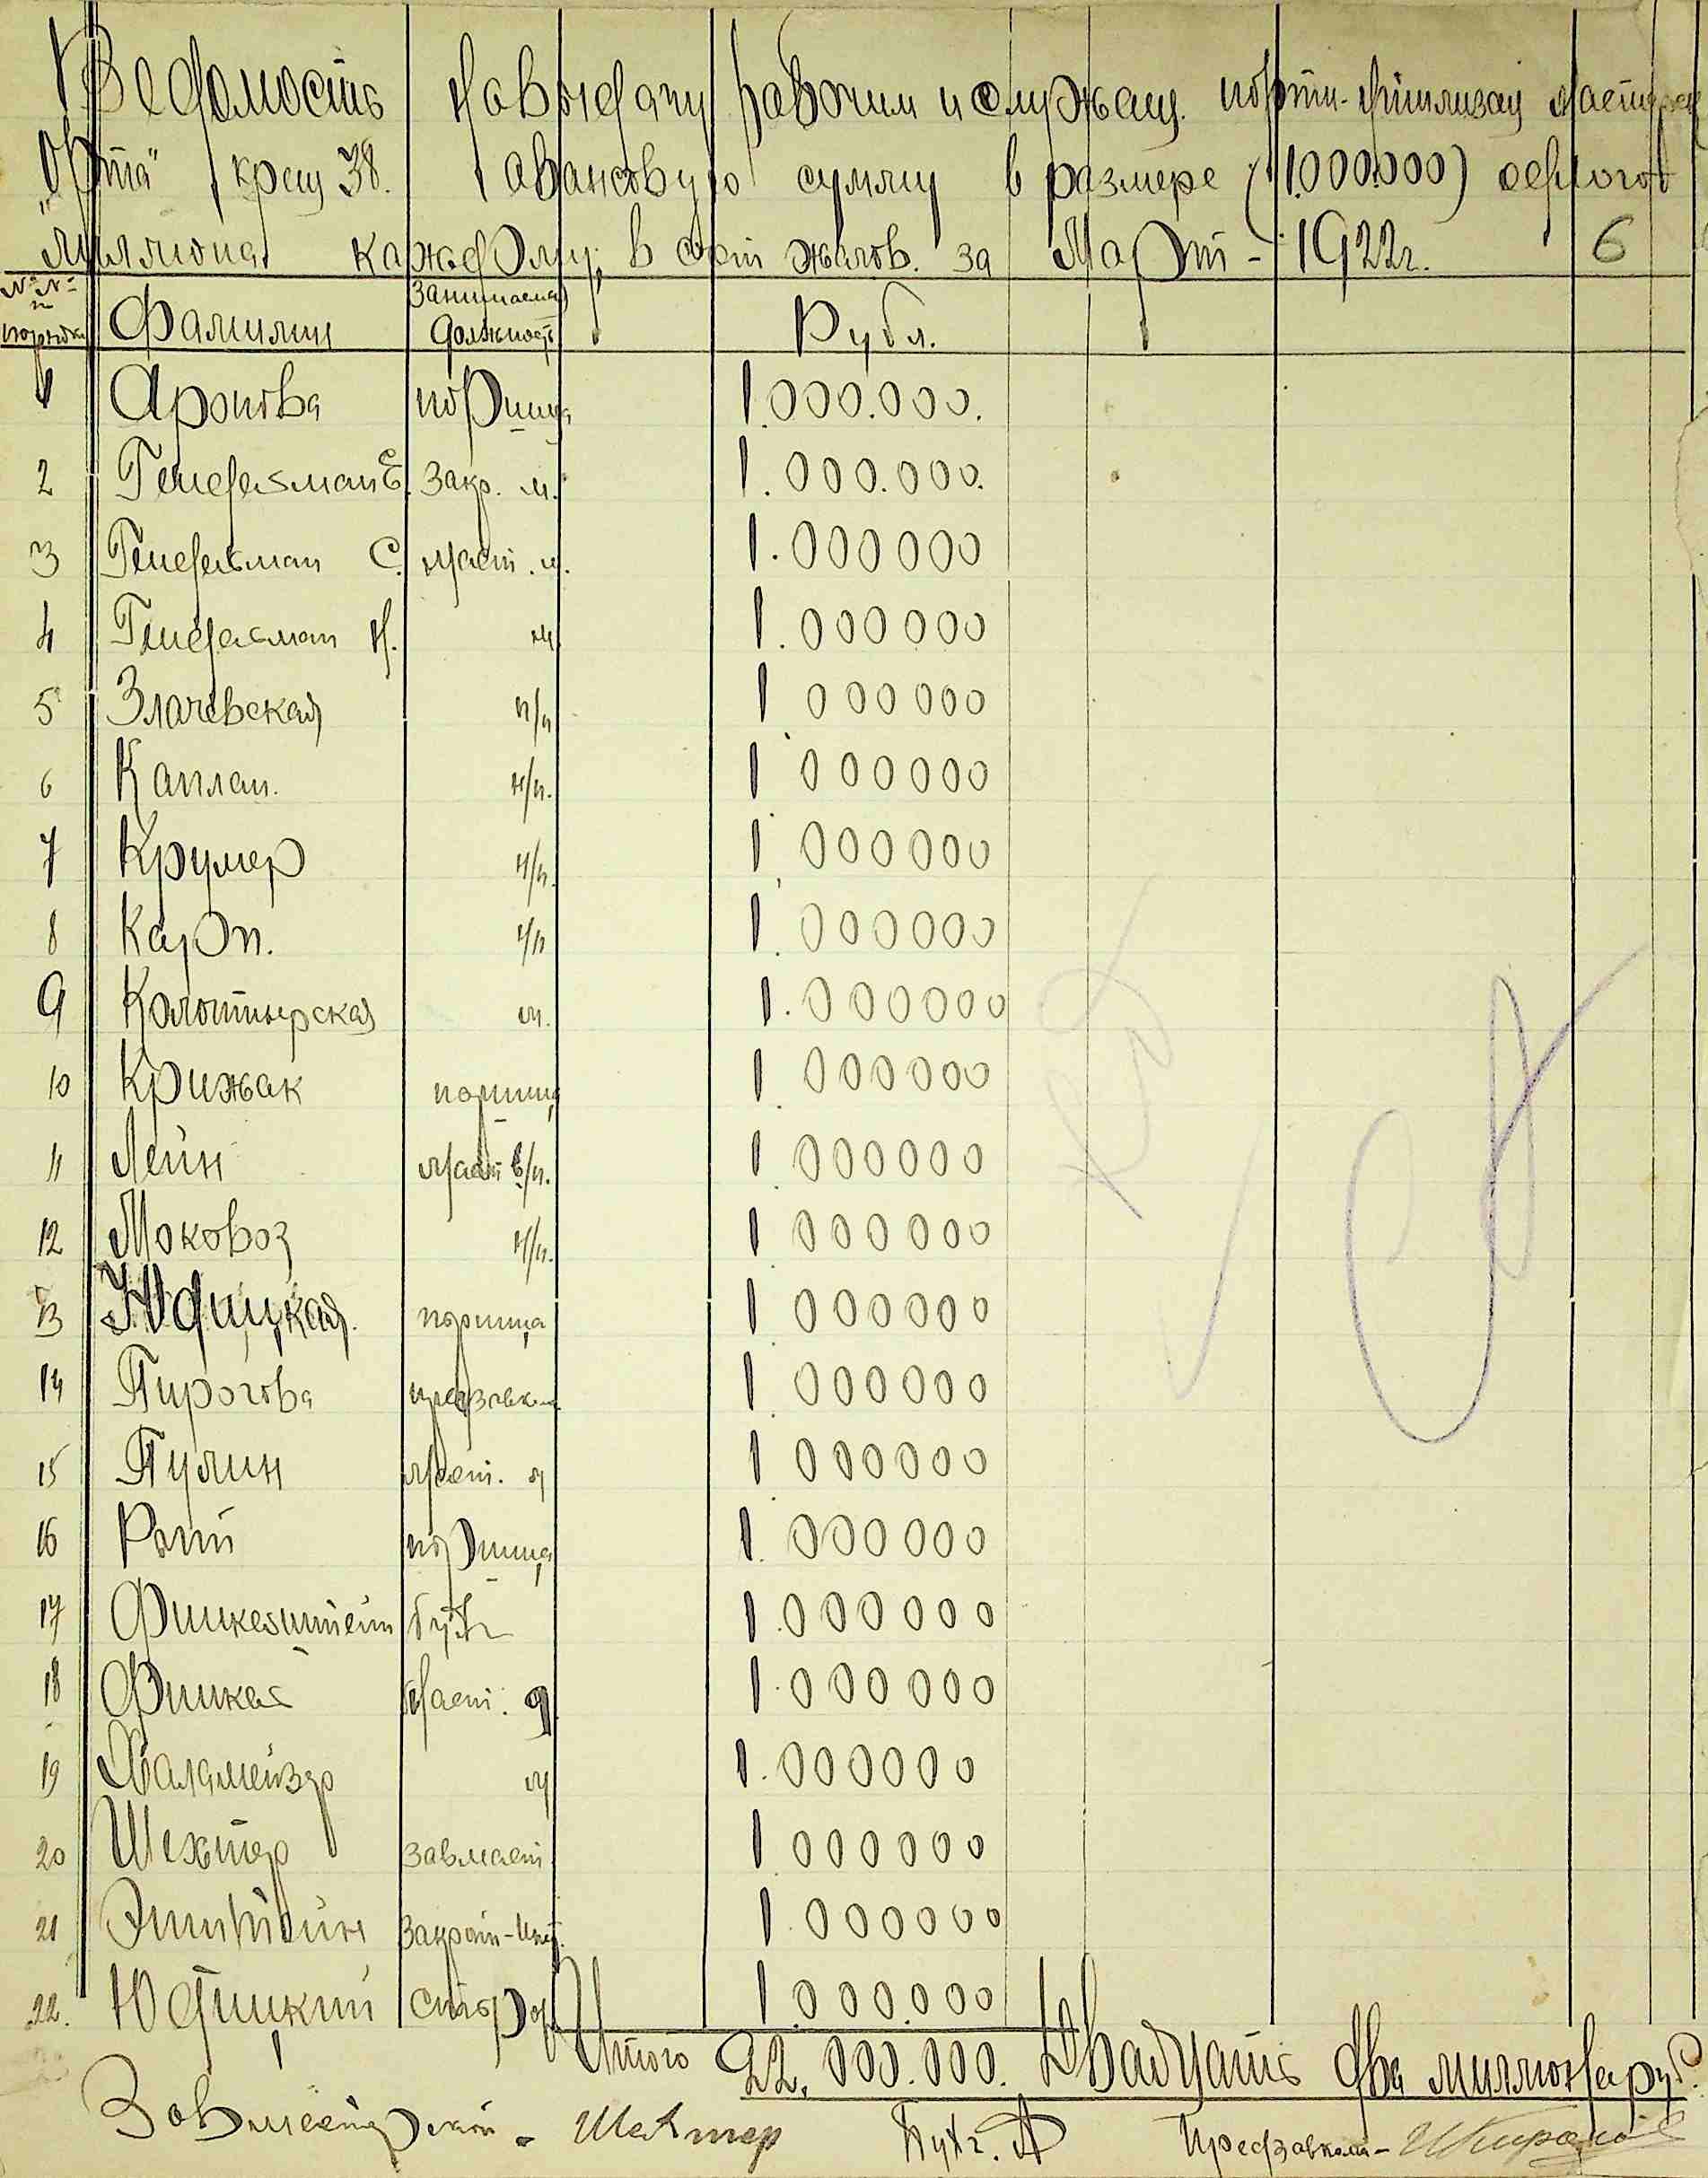 Ведомость на выдачу рабочим и служащ. порти-
"Орта" крац 38. авансовую сумму в размере (1.000.000) одного
миллиона каждому, в счет жалов. за Март - 1922г. 6
№ №
п
порядка Фамилии Занимаемая должность Рубл.
1 Аронова порщица 1.000.000.
2 Гендельман Е. Закр. м. 1.000.000.
3 Гендельман С. маст. м. 1.000000
4 Гендельман Н. м. 1.000000
5 Злачевская н/п 1 000000
6 Каплан. н/п. 1 000000
7 Крумер н/п. 1 000000
8 Карп. н/п 1.000000
9 Колотырская м. 1.000000
10 Крижак порщица 1 000000
11 Лейн маст в/п. 1 000000
12 Моковоз н/п. 1 000000
13 Юдицкая. порщица 1 000000
14 Пирогова предзавком. 1 000000
15 Пулин маст. м 1 000000
16 Ротт порщица 1.000000
17 Финкельштейн бухг 1.000000
18 Финкель маст. д 1.000000
19 Халамейзер м 1.000000
20 Шехтер завмаст. 1 000000
21 Эпштейн Закрой- 1.000000
22. Юдицкий сторож 1.000.000
Итого 22.000.000. Двадцать два миллиона руб.
Завмастерской - Шехтер Бухг. Предзавкома -